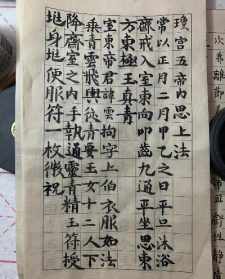 瓊宮五帝內思上法
常以正月二月甲乙之日平旦沐浴
齋戒入室東向叩齒九通平坐思東
方東極王真青
室東帝君諱雲拘字上伯衣服如法
乘青雲飛輿從青要玉女十二人下
降齋室之內手執通靈青精玉符授
兆身兆便服符一枚微祝